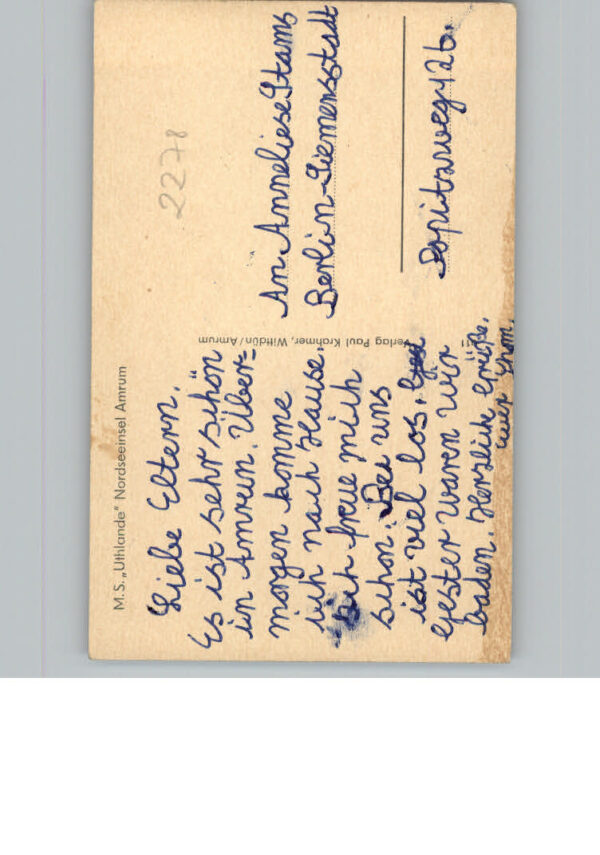 M.S. „Uthlande" Nordseeinsel Amrum
Liebe Eltern.
Es ist sehr schön
in Amrun. Über-
morgen komme
ich nach Hause.
Ich freue mich
schon. Bei uns
ist viel los.
Gester waren wir
baden. Herzlich Grüße.
euer
Verlag Paul Krahmer, Wittdün/Amrum
2278
An Anneliese Stams
Berlin-Siemensstadt
Popitzweg 12b.